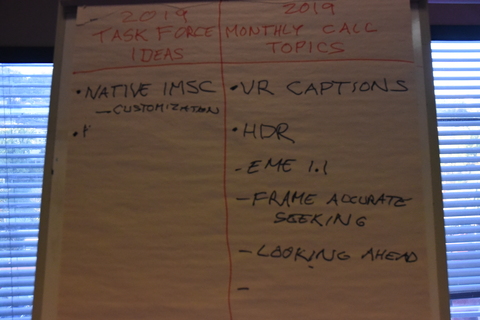 2019
TASK FORCE
IDEAS
• NATIVE IMSC
— CUSTOMIZATION
•
2019
MONTHLY CALL
TOPICS
• VR CAPTIONS
• HDR
- EME 1.1
- FRAME ACCURATE
SEEKING
- LOOKING AHEAD
-